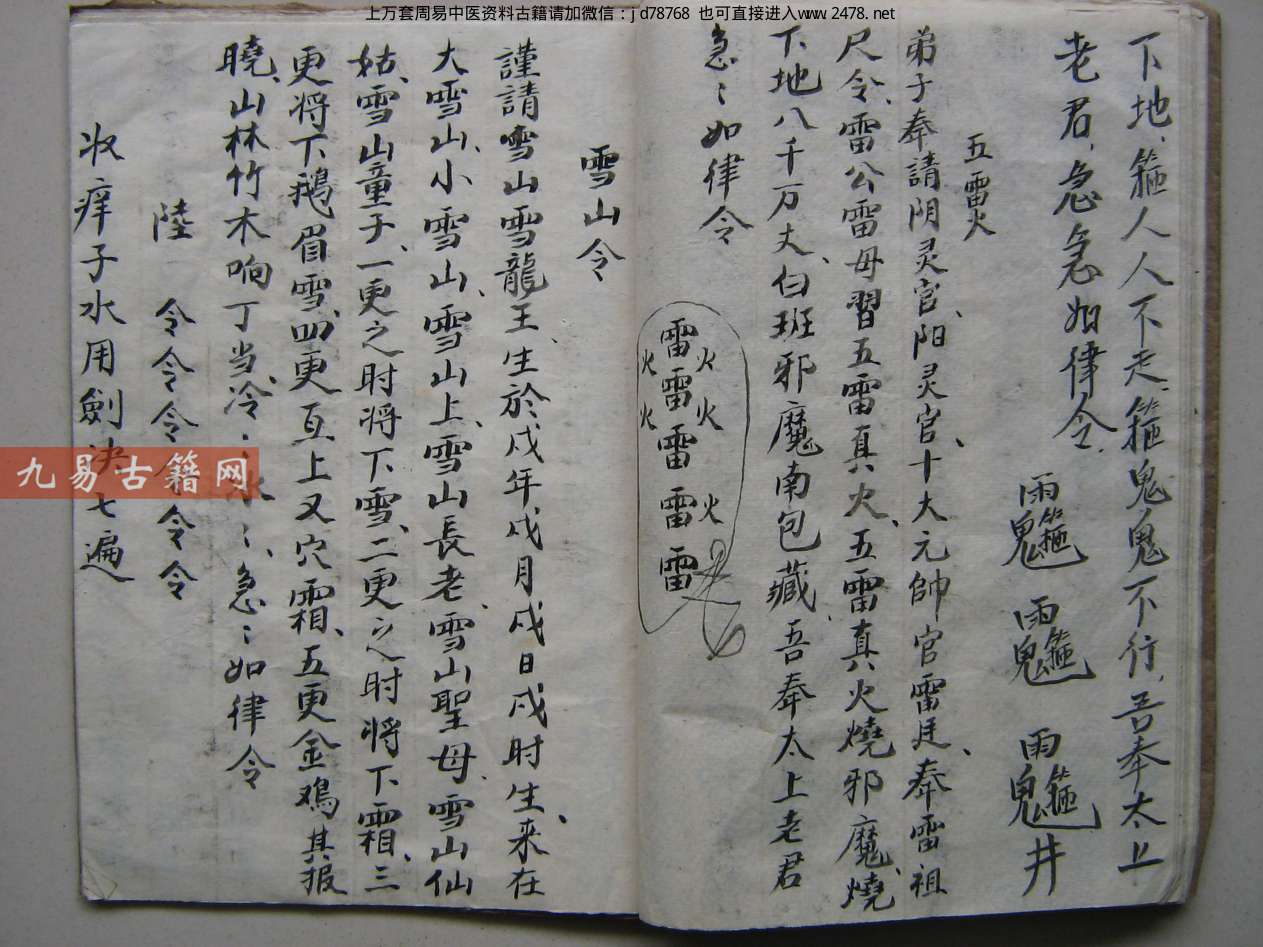 上万套周易中医资料古籍请加微信：jd78768 也可直接进入www.2478.net
下地、箍人人不走、箍鬼鬼不行、吾奉太上
老君、急急如律令、
井
五雷火
弟子奉請阴灵官、阳灵官、十大元帥官雷廷、奉雷祖
尺令、雷公雷母習五雷真火、五雷真火燒邪魔、燒
下地八千万丈、白班邪魔南包藏、吾奉太上老君
急〻如律令
雷雷雷雷雷
火火火
火火
雪山令
謹請雪山雪龍王、生於戌年戌月戌日戌时生、来在
大雪山、小雪山、雪山上、雪山長老、雪山聖母、雪山仙
姑、雪山童子、一更之时将下雪、二更之时将下霜、三
更将下鵝眉雪、四更上又霜、五更金鳮其报
曉、山林竹木响丁当、冷〻氷〻、急〻如律令
陸 令令令令令令
收痒子水用劍决七遍
九易古籍网